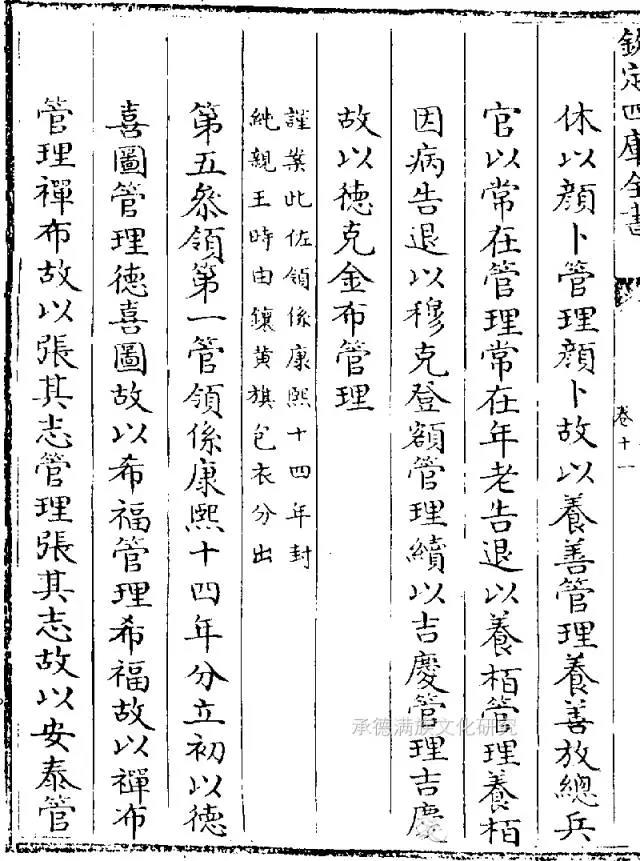 欽定四庫全書
卷十一
休以顔卜管理顔卜故以養善管理養善放總兵
官以常在管理常在年老告退以養栢管理養栢
因病告退以穆克登額管理續以吉慶管理吉慶
故以德克金布管理
謹案此佐領係康熙十四年封
純親王時由鑲黄旗包衣分出
第五叅領第一管領係康熙十四年分立初以德
喜圖管理德喜圖故以希福管理希福故以禪布
管理禪布故以張其志管理張其志故以安泰管
承德满族文化研究